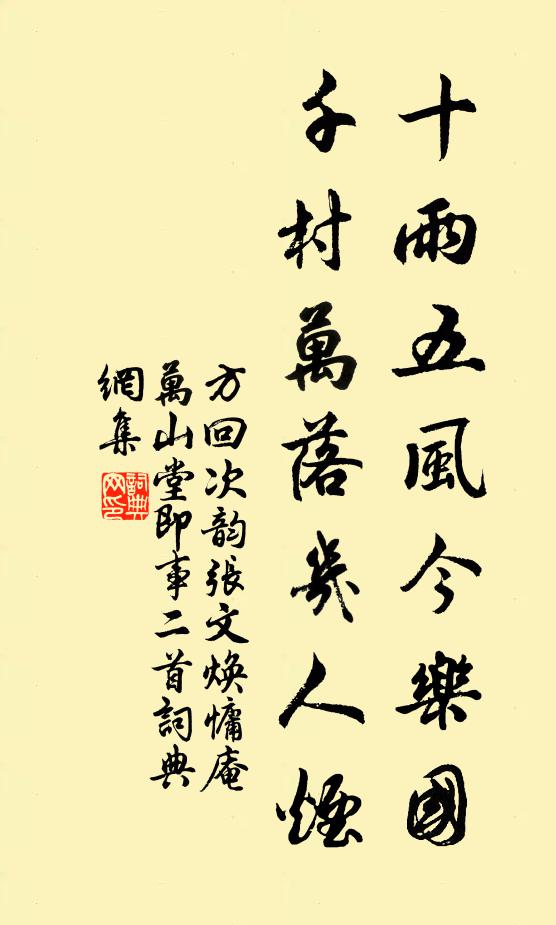 十雨五風今樂國
千村萬落幾人煙
方回次韵張文煥慵庵
萬山堂即事二首詞典
網集
詞典網印